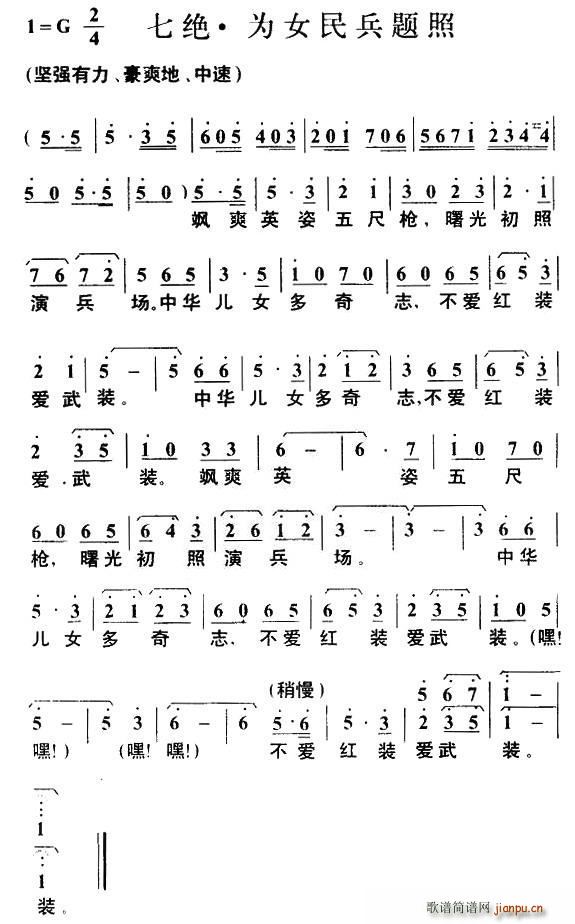 1=G 2/4 七绝·为女民兵题照
(坚强有力、豪爽地、中速)
( 5·5 | 5·3 5 | 605 403 | 201 706 | 5671 2344 |
5 0 5·5 | 5 0 ) 5·5 | 5·3 | 2 1 | 3 0 2 3 | 2·1 |
飒爽英姿五尺枪,曙光初照
7 6 7 2 | 5 6 5 | 3·5 | 1 0 7 0 | 6 0 6 5 | 6 5 3 |
演兵场。中华儿女多奇志,不爱红装
2 1 | 5 – | 5 6 6 | 5·3 | 2 1 2 | 3 0 6 6 | 6 5 3 |
爱武装。中华儿女多奇志,不爱红装
2 3 5 | 1 0 3 3 | 6 – | 6·7 | 1 0 7 0 |
爱·武装。飒爽英姿五尺
6 0 6 5 | 6 4 3 | 2 6 1 2 | 3 – | 3 – | 3 6 6 |
枪,曙光初照演兵场。中华
5·3 | 2 1 2 3 | 6 0 6 5 | 3 5 3 | 2 3 5 | 1 0 5 |
儿女多奇志,不爱红装爱武装。(嘿!
(稍慢)
5 6 7 | 1 –
5 – | 5 3 | 6 – | 6 | 5·6 | 5·3 | 2 3 5 | 1 –
嘿!) (嘿!嘿!) 不爱红装爱武装。
1
1
装。
歌谱简谱网
jianpu.cn